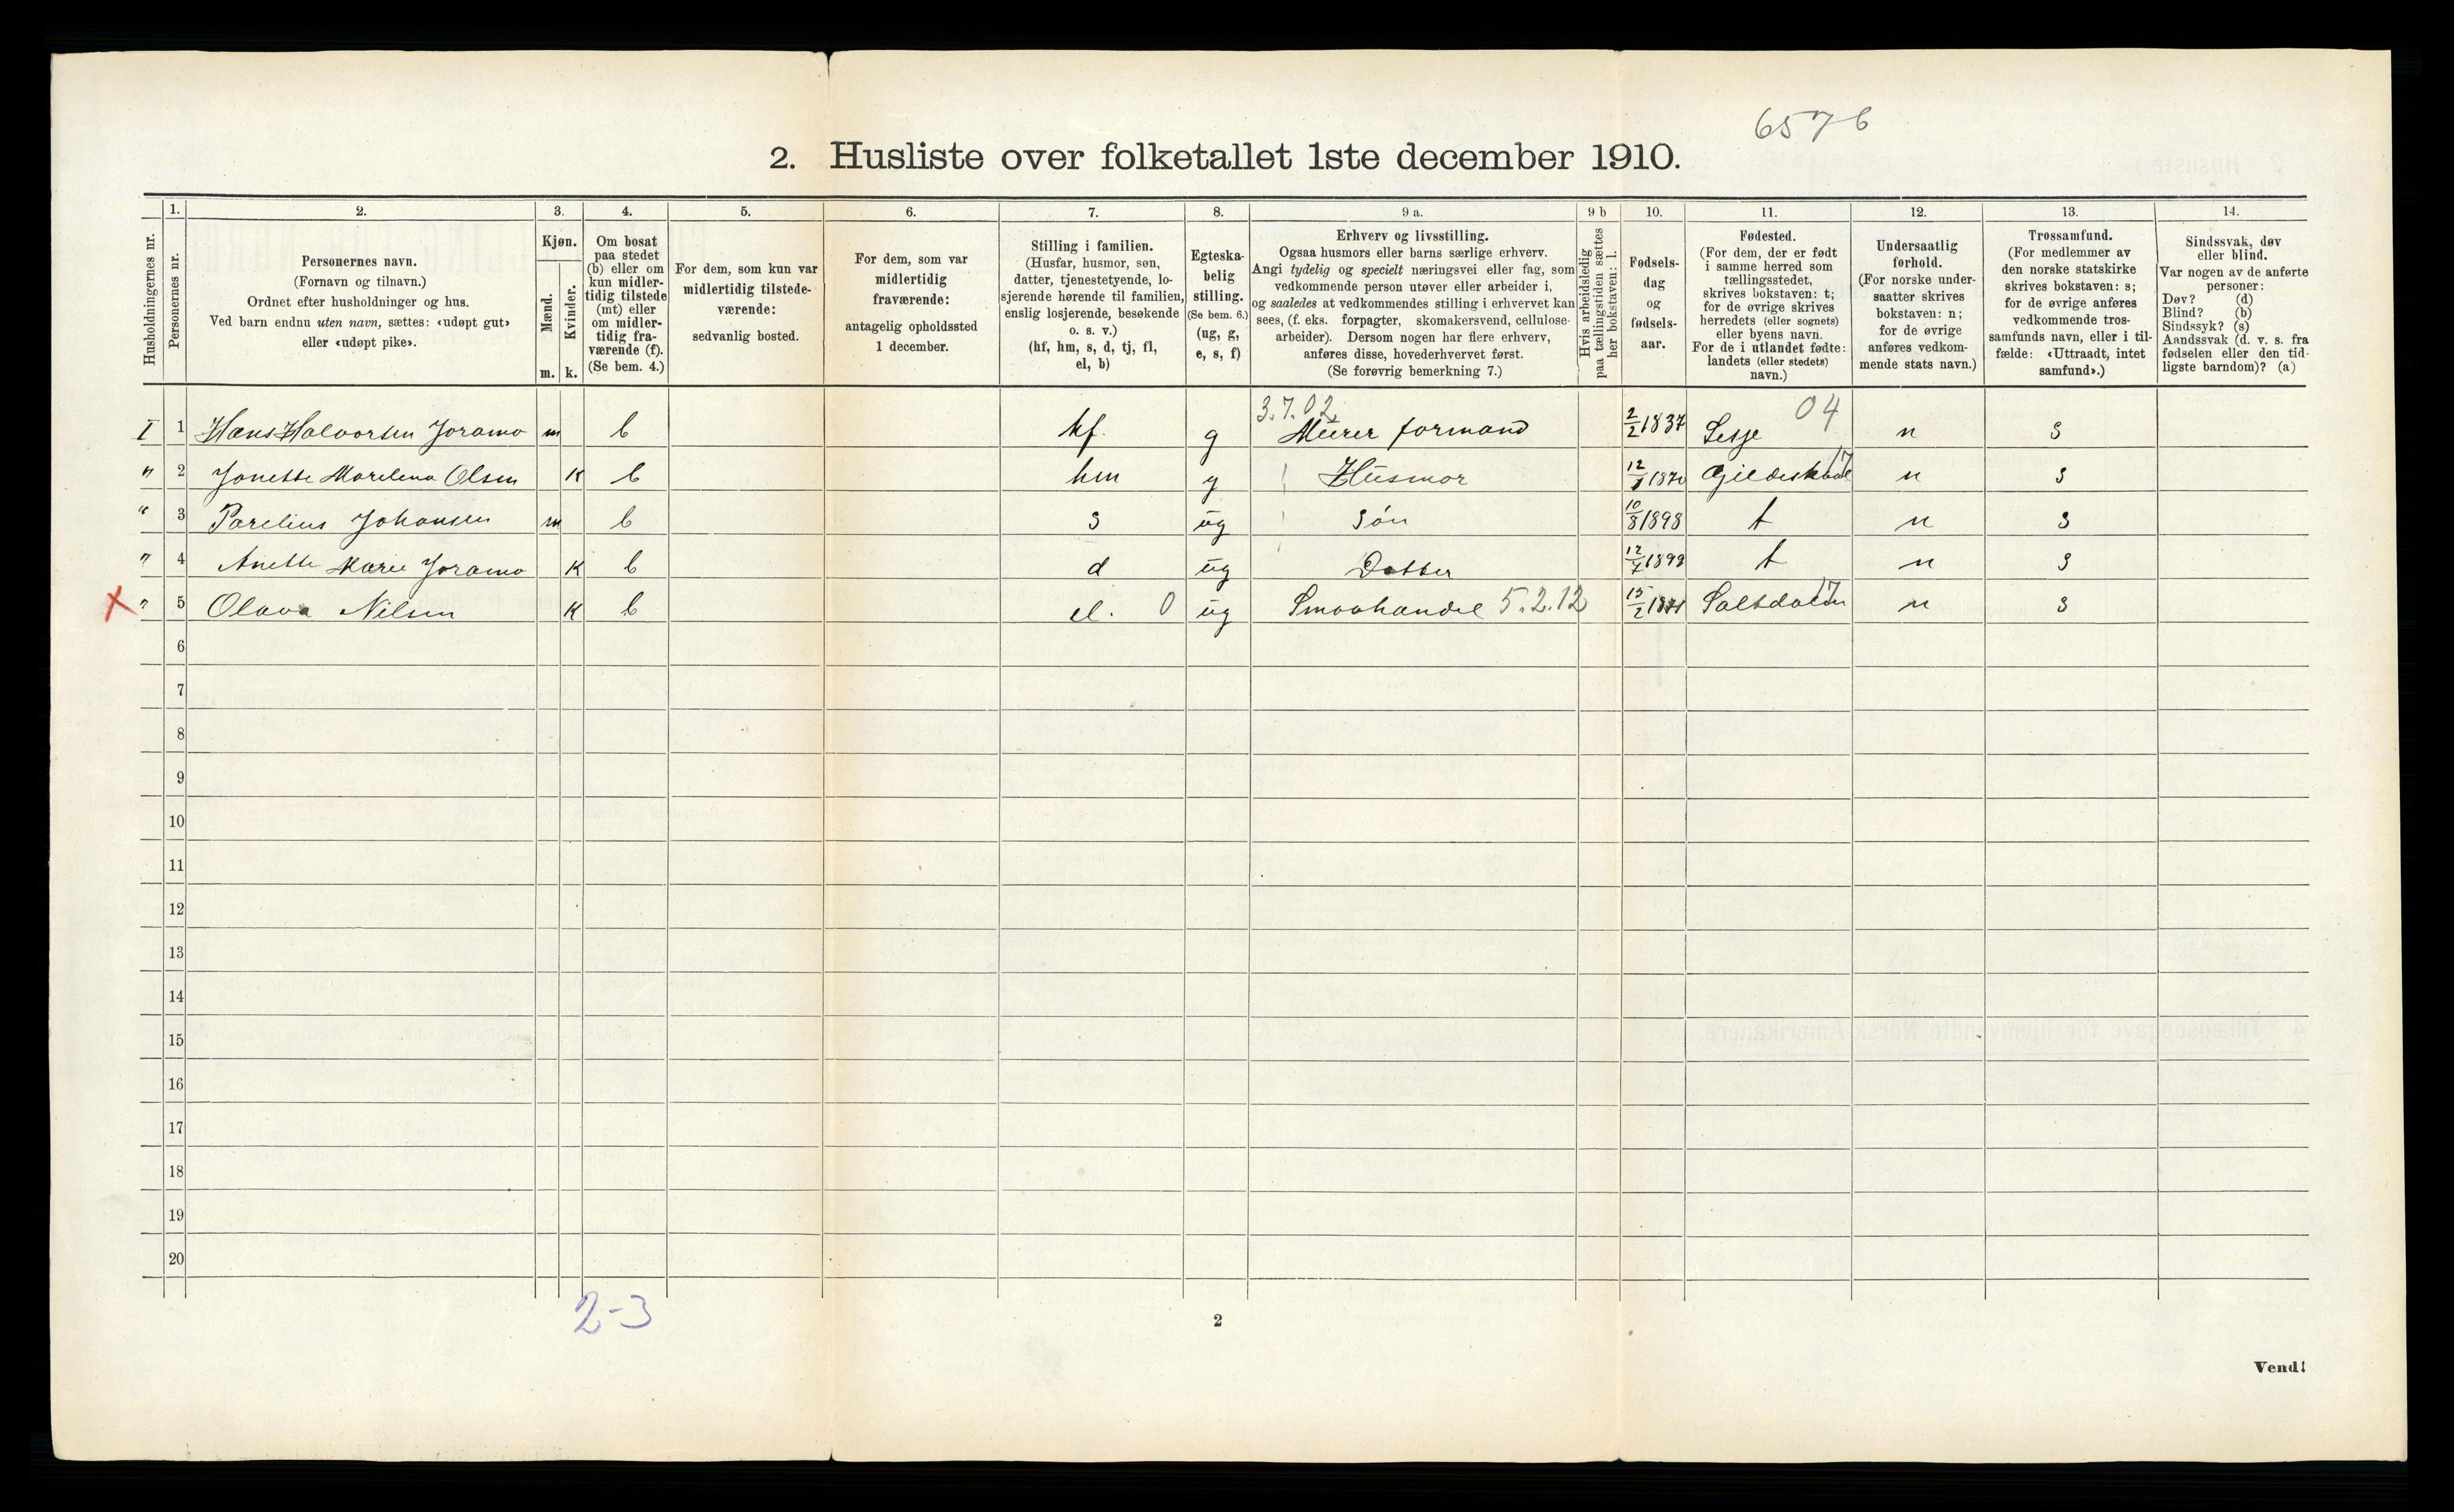 6576
2. Husliste over folketallet 1ste december 1910.
Husholdningernes nr.
1.
Personernes nr.
2.
Personernes navn.
(Fornavn og tilnavn.)
Ordnet efter husholdninger og hus.
Ved barn endnu uten navn, sættes: «udøpt gut»
eller «udøpt pike».
3.
Kjøn.
Mænd.
Kvinder.
m. k.
4.
Om bosat
paa stedet
(b) eller om
kun midler-
tidig tilstede
(mt) eller
om midler-
tidig fra-
værende (f).
(Se bem. 4.)
5.
For dem, som kun var
midlertidig tilstede-
værende:
sedvanlig bosted.
6.
For dem, som var
midlertidig
fraværende:
antagelig opholdssted
1 december.
7.
Stilling i familien.
(Husfar, husmor, søn,
datter, tjenestetyende, lo-
sjerende hørende til familien,
enslig losjerende, besøkende
o. s. v.)
(hf, hm, s, d, tj, fl,
el, b)
8.
Egteska-
belig
stilling.
(Se bem. 6.)
(ug, g,
e, s, f)
9 a.
Erhverv og livsstilling.
Ogsaa husmors eller barns særlige erhverv.
Angi tydelig og specielt næringsvei eller fag, som
vedkommende person utøver eller arbeider i,
og saaledes at vedkommendes stilling i erhvervet kan
sees, (f. eks. forpagter, skomakersvend, cellulose-
arbeider). Dersom nogen har flere erhverv,
anføres disse, hovederhvervet først.
(Se forøvrig bemerkning 7.)
9 b
Hvis arbeidsledig
paa tællingstiden sættes
her bokstaven: l.
10.
Fødsels-
dag
og
fødsels-
aar.
11.
Fødested.
(For dem, der er født
i samme herred som
tællingsstedet,
skrives bokstaven: t;
for de øvrige skrives
herredets (eller sognets)
eller byens navn.
For de i utlandet fødte:
landets (eller stedets)
navn.)
12.
Undersaatlig
forhold.
(For norske under-
saatter skrives
bokstaven: n;
for de øvrige
anføres vedkom-
mende stats navn.)
13.
Trossamfund.
(For medlemmer av
den norske statskirke
skrives bokstaven: s;
for de øvrige anføres
vedkommende tros-
samfunds navn, eller i til-
fælde: «Uttraadt, intet
samfund».)
14.
Sindssvak, døv
eller blind.
Var nogen av de anførte
personer:
Døv? (d)
Blind? (b)
Sindssyk? (s)
Aandssvak (d. v. s. fra
fødselen eller den tid-
ligste barndom)? (a)
3.7.02 04
I 1 Hans Halvorsen Joramo m b hf. g Murer formand 2/2 1837 Lesje n s
" 2 Jonette Marelena Olsen K b hm g Husmor 1870 Gildeskaal 17 n s
" 3 Parelius Johansen m b s ug Søn 10/8 1898 t n s
" 4 Anette Marie Joramo K b d ug Datter t n s
X " 5 Olava Nilsen K b el. 0 ug Smaahandel 5.2.12 15/2 Saltdalen 17 n s
6
7
8
9
10
11
12
13
14
15
16
17
18
19
20
2-3
2
Vend!